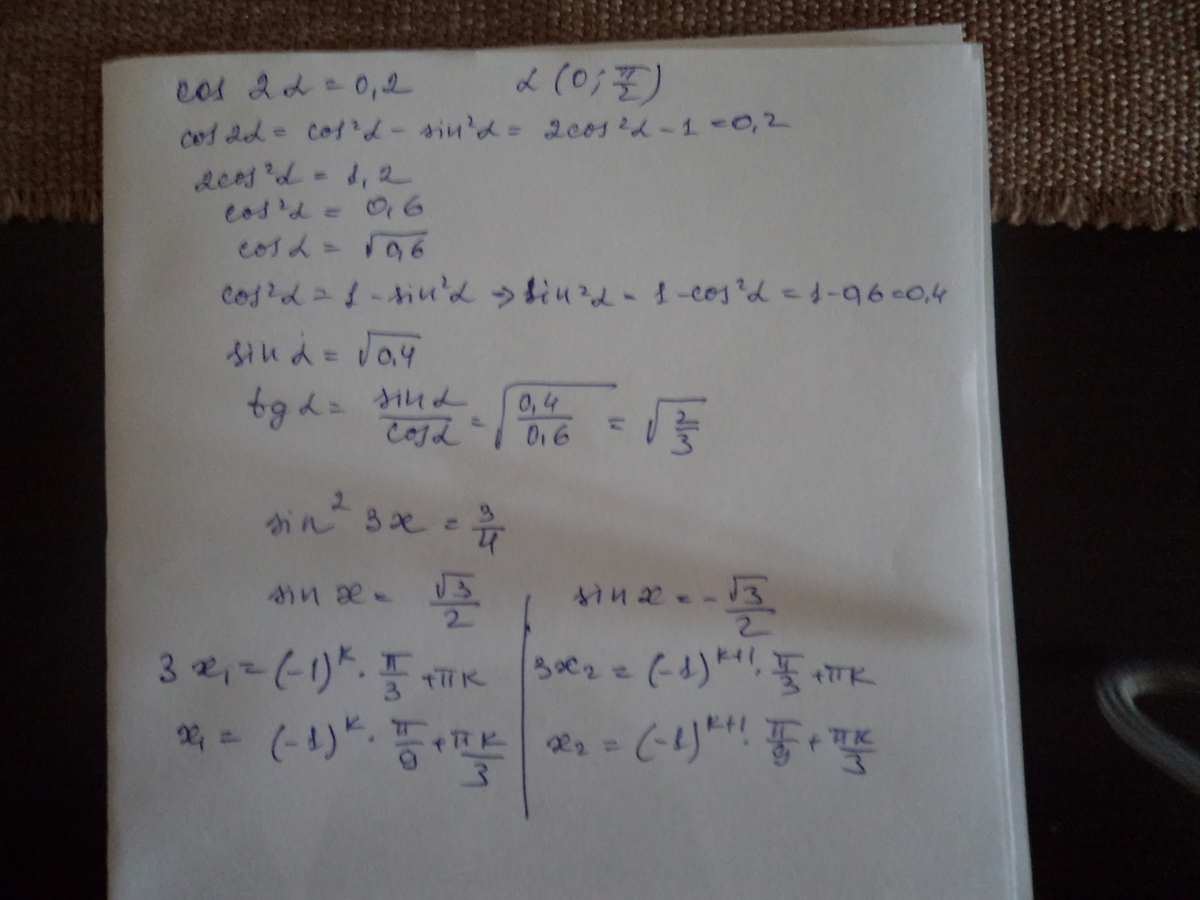 cos 2α = 0,2 α (0; π/2)
cos 2α = cos²α - sin²α = 2cos²α - 1 = 0,2
2cos²α = 1,2
cos²α = 0,6
cos α = √0,6
cos²α = 1 - sin²α => sin²α = 1 - cos²α = 1 - 0,6 = 0,4
sin α = √0,4
tg α = sin α/cos α = √(0,4/0,6) = √(2/3)
sin² 3x = 3/4
sin x = √3/2 sin x = -√3/2
3x₁ = (-1)ᵏ · π/3 + πk 3x₂ = (-1)ᵏ⁺¹ · π/3 + πk
x₁ = (-1)ᵏ · π/9 + πk/3 x₂ = (-1)ᵏ⁺¹ · π/9 + πk/3